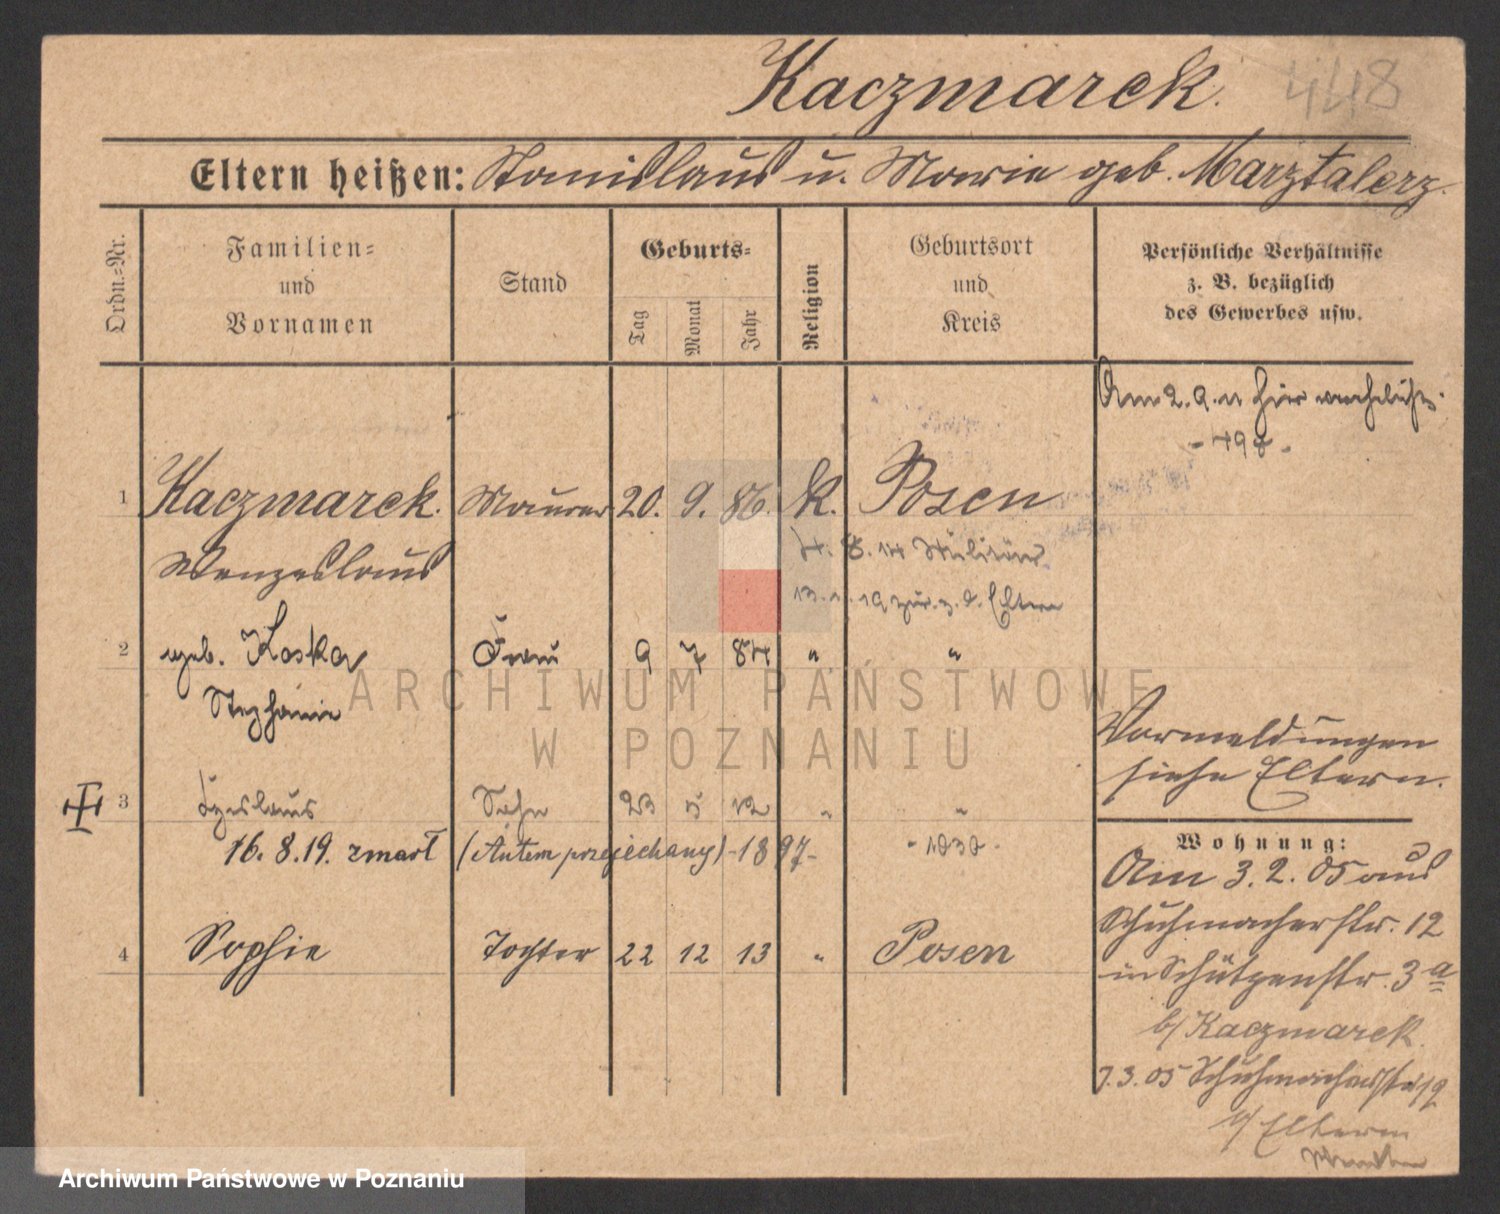 Kaczmarek.
448
Eltern heißen: Stanislaus u. Marie geb. Marztalerz.
Ordn.=Nr.
Familien=
und
Vornamen
Stand
Geburts=
Tag
Monat
Jahr
Religion
Geburtsort
und
Kreis
Persönliche Verhältnisse
z. B. bezüglich
des Gewerbes usw.
Am 2.9.11 hier verehelicht.
1 Kaczmarek. Maurer 20. 9. 86. k. Posen
Wenzeslaus
4. 8. 14 Militär
19 zur. z. d. Eltern
2 geb. Koska Frau 9 7 84 " "
Stephanie
Vormeldungen
siehe Eltern.
3 Czeslaus Sohn 23 5 12 " "
16. 8. 19. zmarł (Autem przejechany) -1897-
Wohnung:
Am 3. 2. 05 aus
Schuhmacherstr. 12
in Schützenstr. 3 a
b/ Kaczmarek.
4 Sophie Tochter 22 12 13 " Posen
7. 3. 05 Schuhmacherstr 12
b/ Eltern
ARCHIWUM PAŃSTWOWE
W POZNANIU
Archiwum Państwowe w Poznaniu